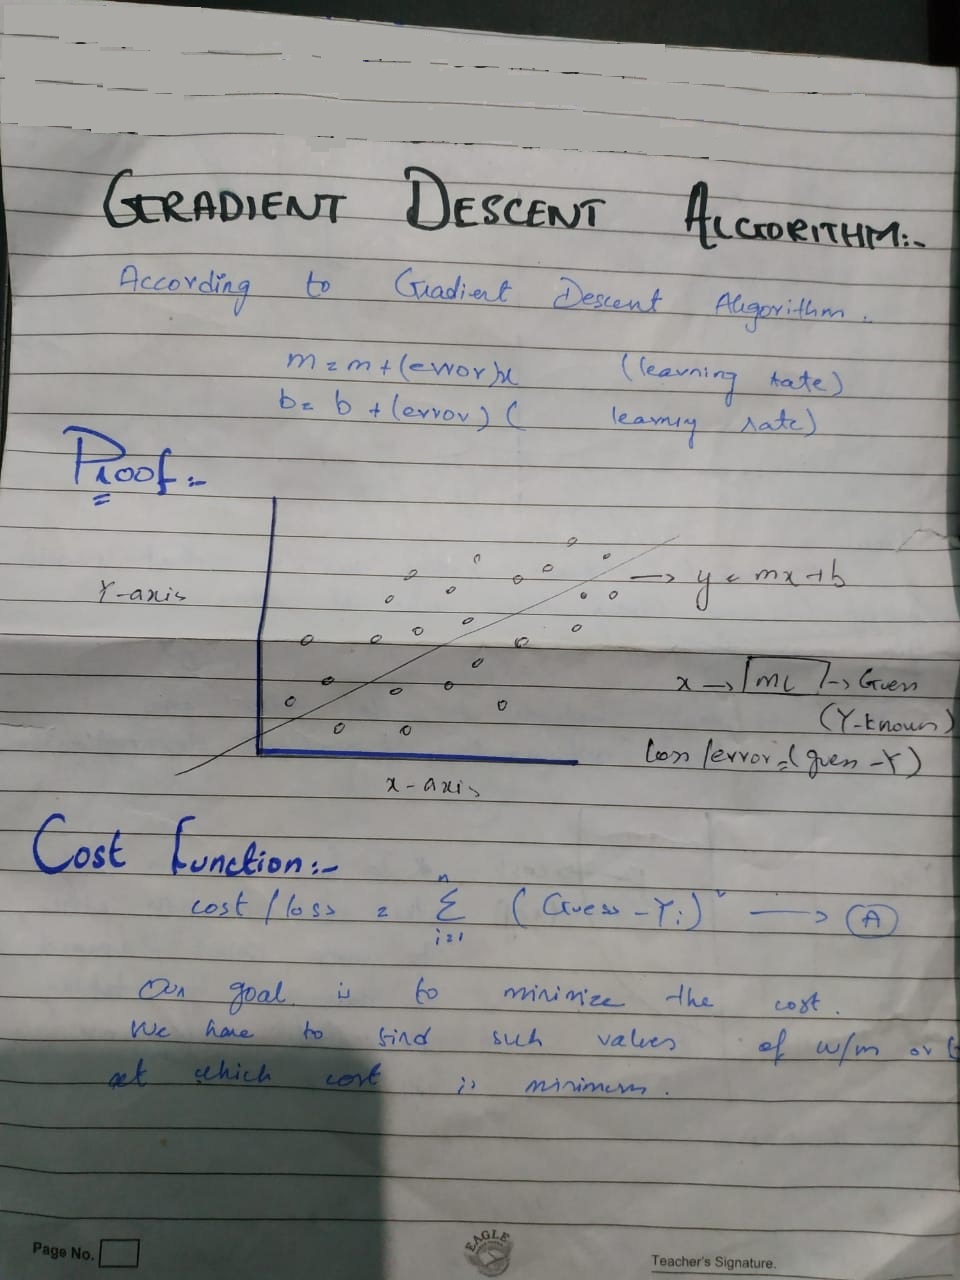 GRADIENT DESCENT ALGORITHM:-
According to Gradient Descent Algorithm.
m = m + (error)x (learning rate)
b = b + (error) ( learning rate)
Proof:-
Y-axis
→ y = mx+b
x → ML → Guess
(Y-known)
loss/error = (guess - Y)
x-axis
Cost function:-
cost / loss = n Σ i=1 (Guess - Yi)² → A
Our goal is to minimize the cost.
We have to find such values of w/m or b
at which cost is minimum.
Page No.
EAGLE
Teacher's Signature.